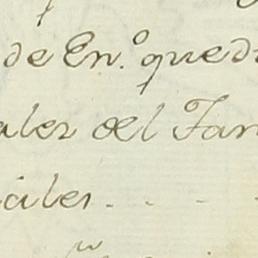 de En.º qued
ales del Tar
iales